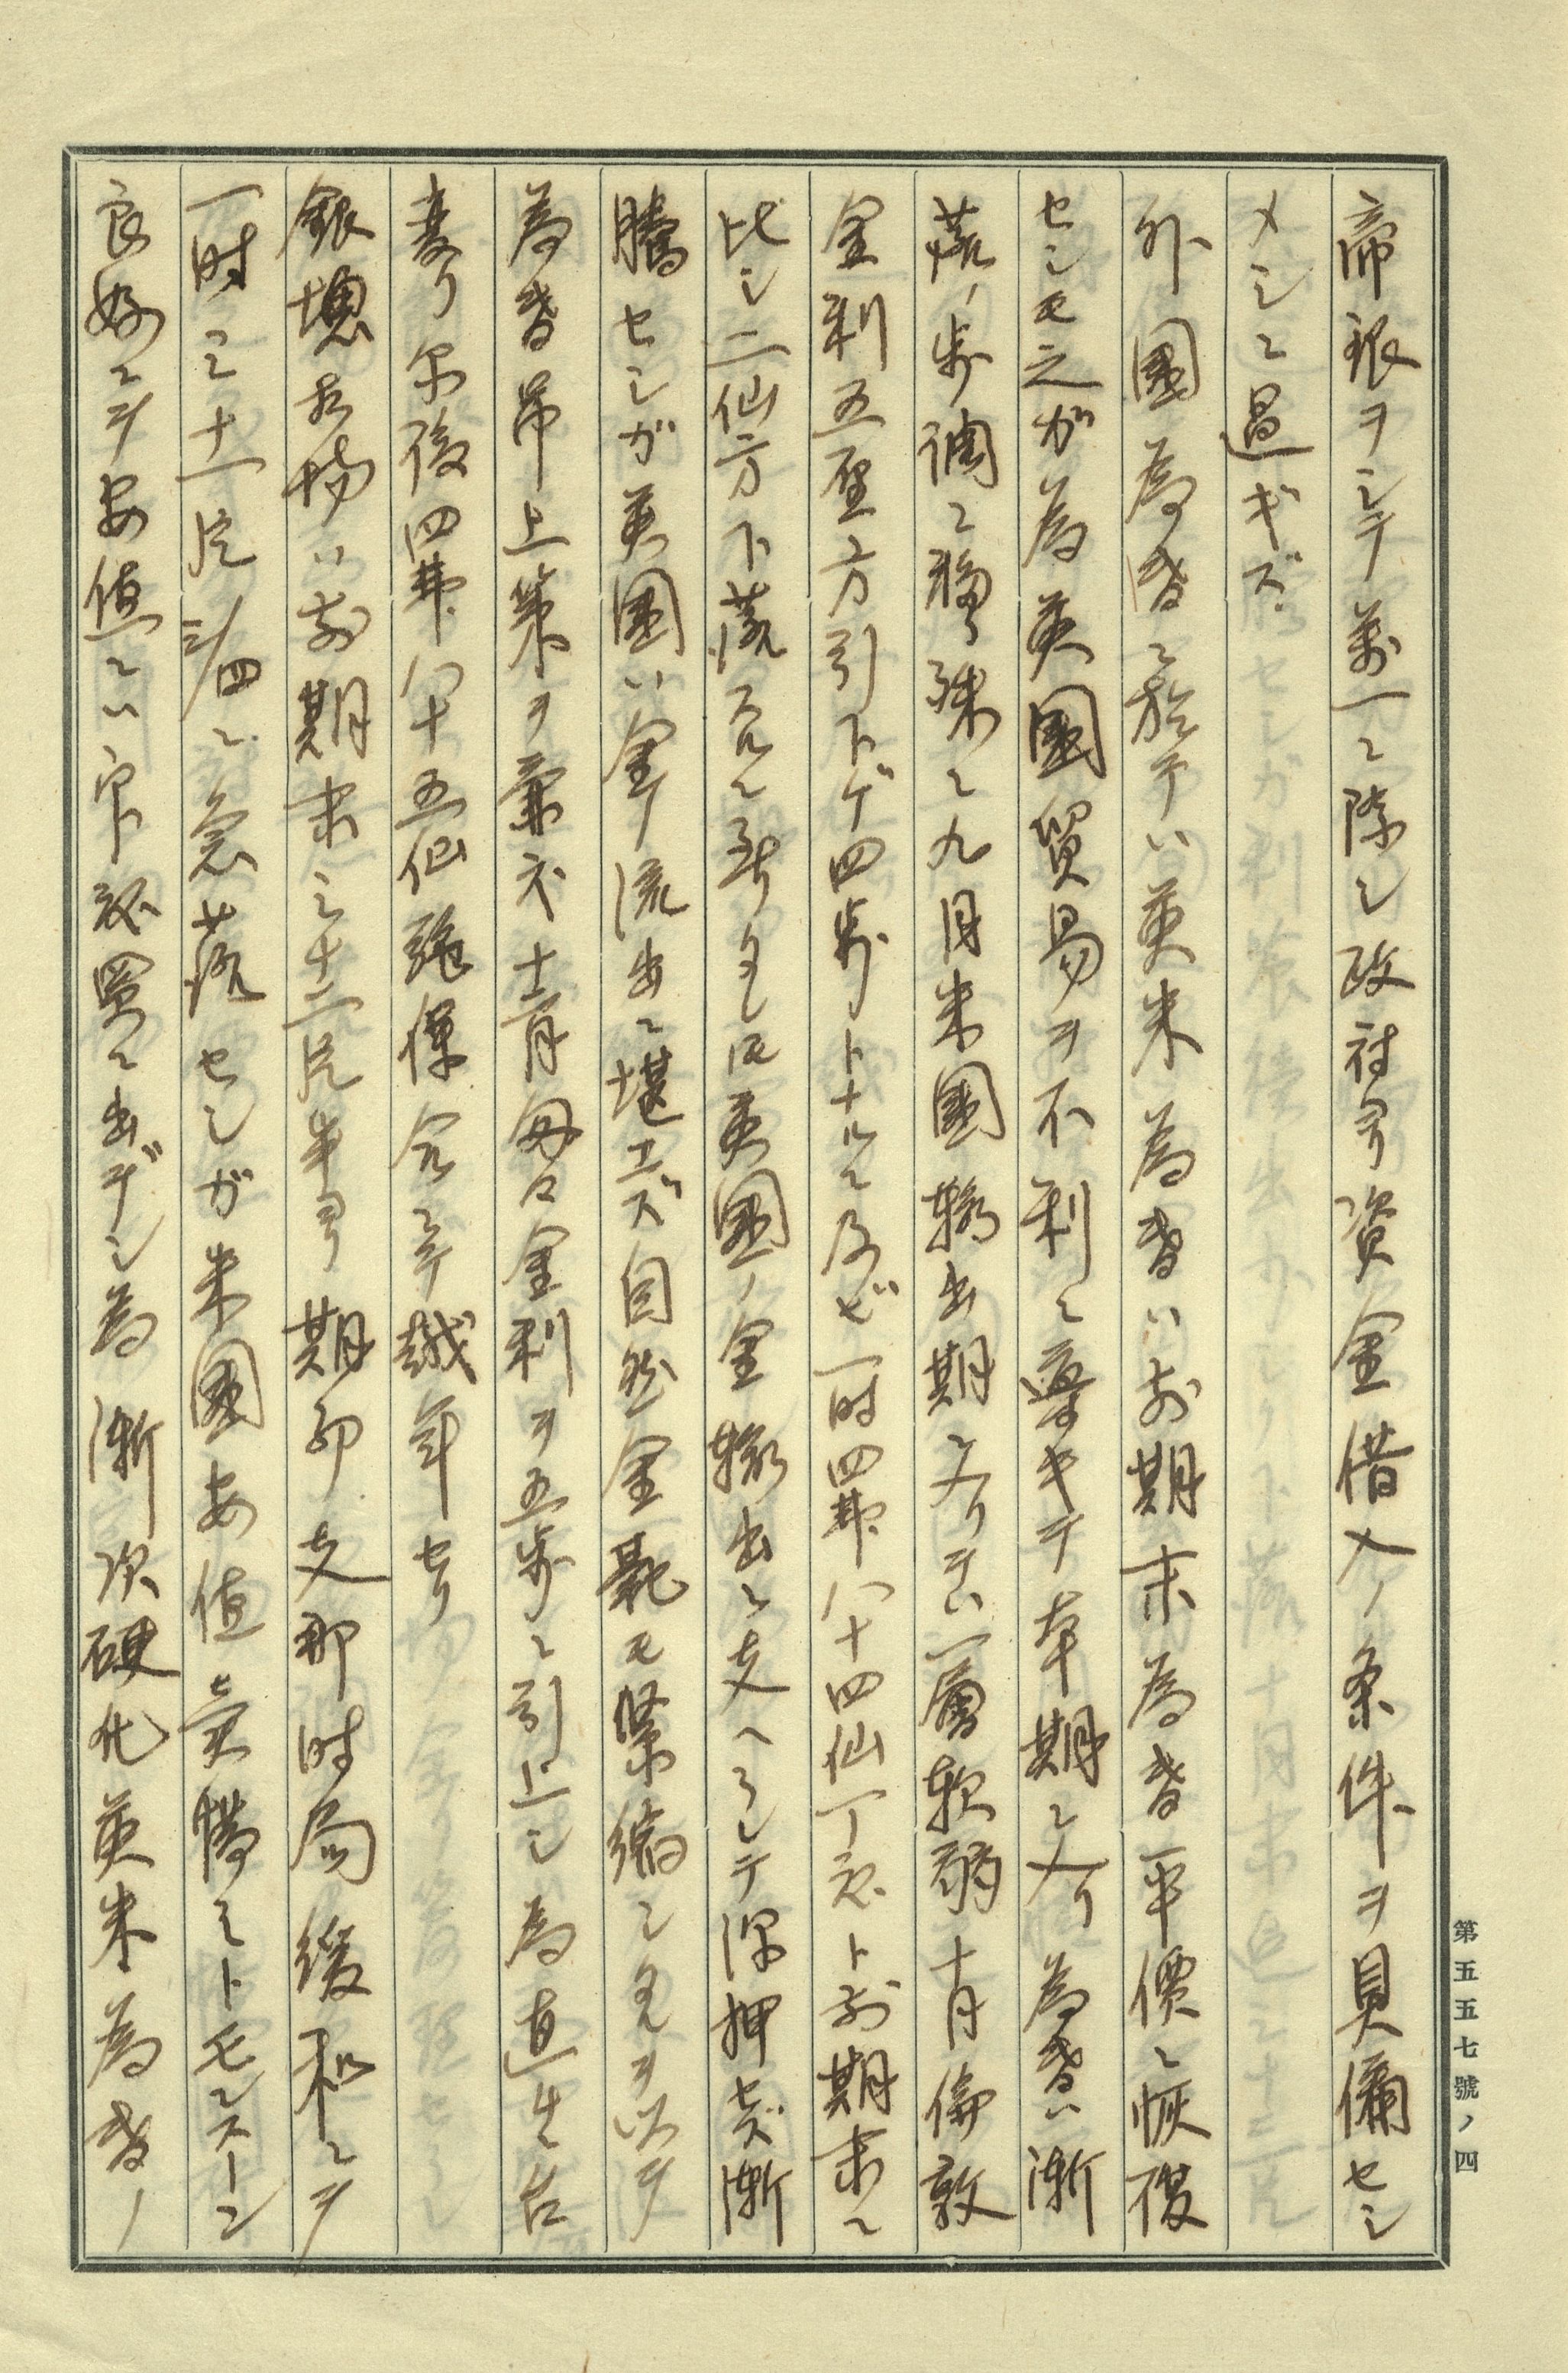 帝銀ヲシテ萬一ニ際シ政府ヨリ資金借入ノ条件ヲ具備セシ
メシニ過ギズ
外国為替ニ於テハ英米為替ハ前期末為替平價ニ恢復
セシモ之ガ為英國貿易ヲ不利ニ導キテ本期ニ入リ為替ハ漸
落ノ歩調ニ移リ殊ニ九月米國輸出期ニ入リテハ一層軟弱十月倫敦
金利五厘方引下ゲ四歩トナルニ及ビ一時四弗八十四仙丁度ト前期末ニ
比シ二仙方下落スルニ至リタルモ英國ノ金輸出ニ支ヘラレテ深押セズ漸
騰セシガ英國ハ金ノ流出ニ堪エズ自然金融モ緊縮シタルヲ以テ
為替吊上策ヲ兼ネ十二月匆々金利ヲ五歩ニ引上シ為直ニ台
変リ尓後四弗八十五仙強保合ニテ越年セリ
銀塊相場ハ前期末三十二片半ヨリ期初支那时局緩和ニテ
一时三十一片三/四ニ急落セシガ米國安値売腰ミト モンスーン
良好ニテ安値ニハ印度買ニ出デシ為漸次硬化英米為替ノ
第五五七號ノ四